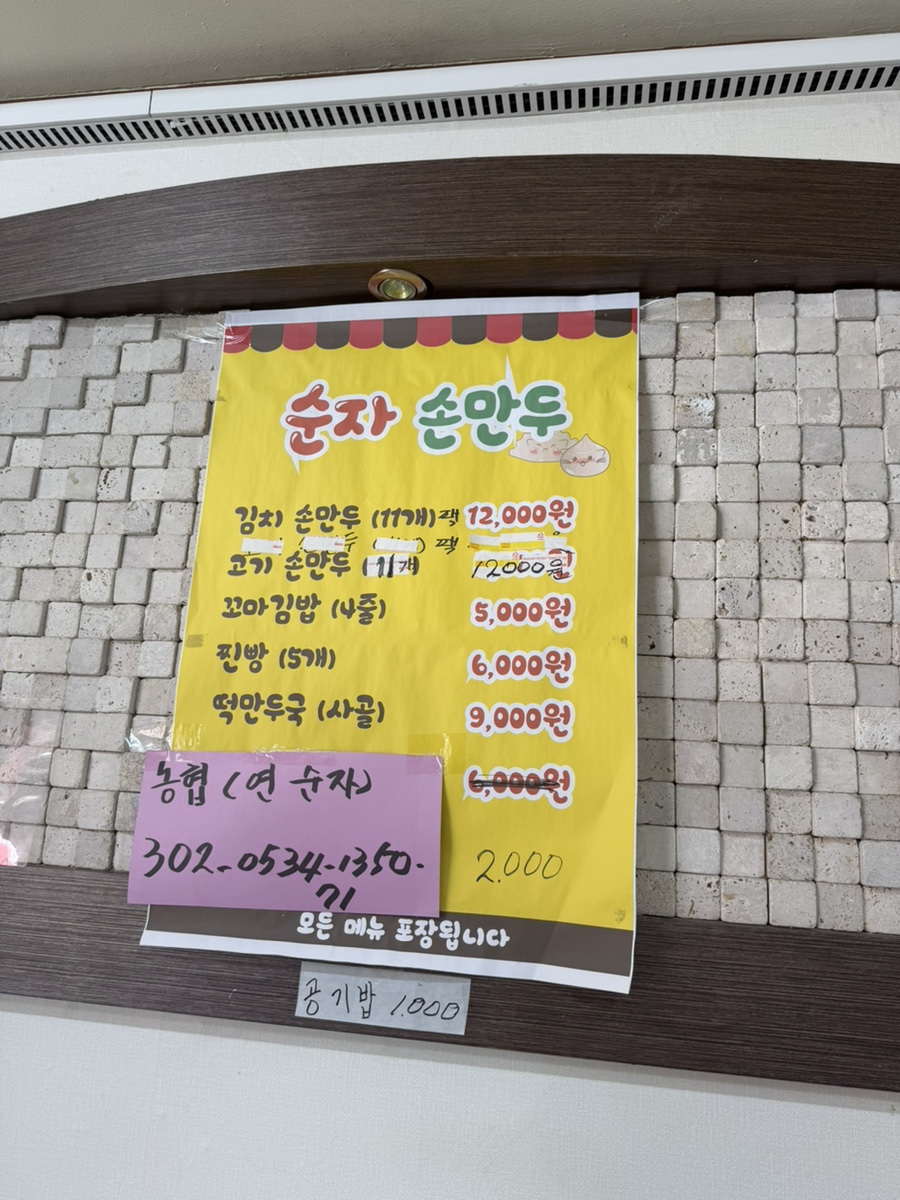 순자 손만두
김치 손만두 (11개) 팩 12,000원
팩
고기 손만두 (11개) 12000원
꼬마김밥 (4줄) 5,000원
찐빵 (5개) 6,000원
떡만두국 (사골) 9,000원
6,000원
농협 (연 순자)
302-0534-1350-
71
2.000
모든 메뉴 포장됩니다
공기밥 1.000